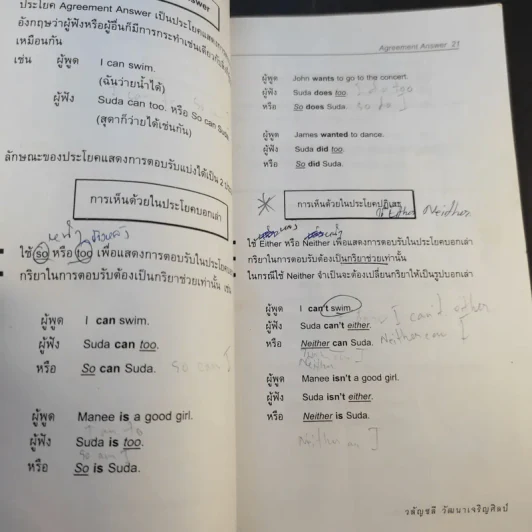 Answer
ประโยค Agreement Answer เป็นประโยคแสดง
อังกฤษว่าผู้ฟังหรือผู้อื่นก็มีการกระทำเช่นเดียวกับ
เหมือนกัน
เช่น ผู้พูด I can swim.
(ฉันว่ายน้ำได้)
ผู้ฟัง Suda can too. หรือ So can Suda.
(สุดาก็ว่ายได้เช่นกัน)
ลักษณะของประโยคแสดงการตอบรับแบ่งได้เป็น 2
การเห็นด้วยในประโยคบอกเล่า
ใช้ so หรือ too เพื่อแสดงการตอบรับในประโยค
กริยาในการตอบรับต้องเป็นกริยาช่วยเท่านั้น เช่น
ผู้พูด I can swim.
ผู้ฟัง Suda can too.
หรือ So can Suda.
So can I
ผู้พูด Manee is a good girl.
ผู้ฟัง Suda is too.
I am to
หรือ So is Suda.
So am I
Agreement Answer 21
ผู้พูด John wants to go to the concert.
ผู้ฟัง Suda does too.
หรือ So does Suda. So do I
ผู้พูด James wanted to dance.
ผู้ฟัง Suda did too.
หรือ So did Suda.
การเห็นด้วยในประโยคปฏิเสธ
Either Neither
ใช้ Either หรือ Neither เพื่อแสดงการตอบรับในประโยคบอกเล่า
กริยาในการตอบรับต้องเป็นกริยาช่วยเท่านั้น
ในกรณีใช้ Neither จำเป็นจะต้องเปลี่ยนกริยาให้เป็นรูปบอกเล่า
ผู้พูด I can't swim.
ผู้ฟัง Suda can't either. I can't either
หรือ Neither can Suda. Neither can I
ผู้พูด Manee isn't a good girl.
ผู้ฟัง Suda isn't either.
หรือ Neither is Suda.
Neither am I
วลัญชลี วัฒนาเจริญศิลป์